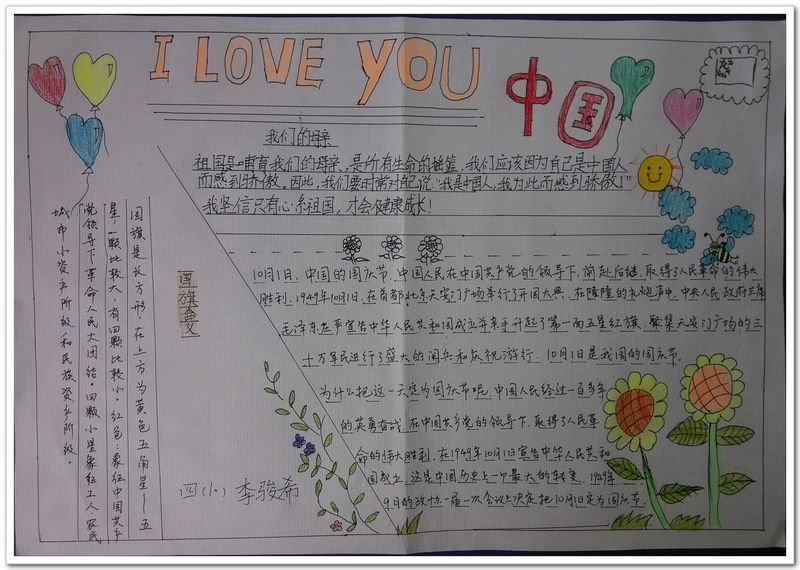 I LOVE YOU 中国
我们的母亲
祖国是哺育我们的母亲,是所有生命的摇篮,我们应该因为自己是中国人
而感到骄傲。因此,我们要时常对自己说"我是中国人,我为此而感到骄傲!"
我坚信只有心系祖国,才会健康成长!
10月1日,中国的国庆节.中国人民在中国共产党的领导下,前赴后继,取得了人民革命的伟大
胜利.1949年10月1日,在首都北京天安门广场举行了开国大典,在隆隆的礼炮声中,中央人民政府主席
毛泽东庄严宣告中华人民共和国成立并亲手升起了第一面五星红旗.聚集天安门广场的三
十万军民进行了盛大的阅兵和庆祝游行.10月1日是我国的国庆节.
为什么把这一天定为国庆节呢,中国人民经过一百多年
的英勇奋战,在中国共产党的领导下,取得了人民革
命的伟大胜利.在1949年10月1日宣告中华人民共和
国成立.这是中国历史上一个最大的转变.1949年
9月的政协一届一次会议上决定把10月1日定为国庆节
国旗含义
国旗是长方形,在上方为黄色五角星——五
星,一颗比较大,有四颗比较小。红色:象征中国共产
党领导下革命人民大团结。四颗小星象征工人、农民
城市小资产阶级、和民族资产阶级。
四(6) 李骏希